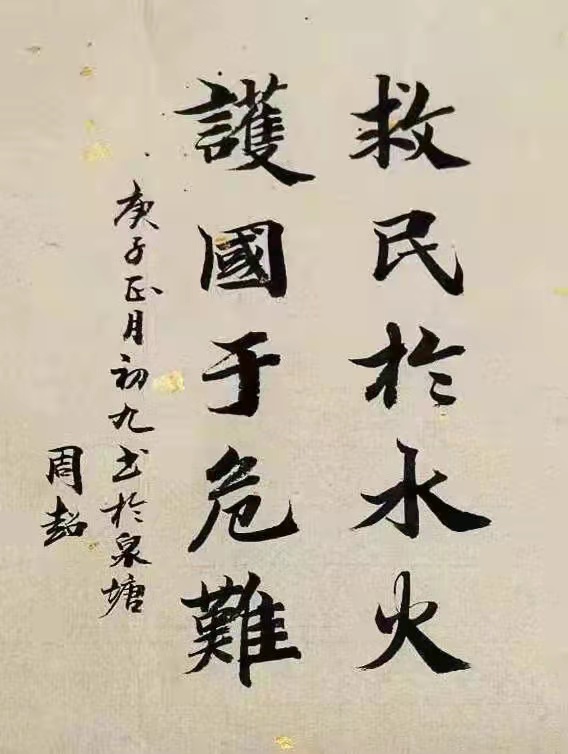 救民於水火
護國于危難
庚子正月初九书於泉塘
周超